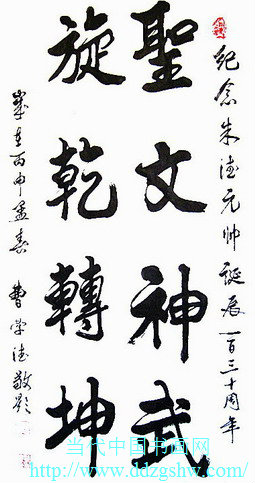 纪念朱德元帅诞辰一百三十周年
聖文神武
旋乾轉坤
岁在丙申孟春 曹学德敬题
当代中国书画网
http://www.ddzgshw.com/